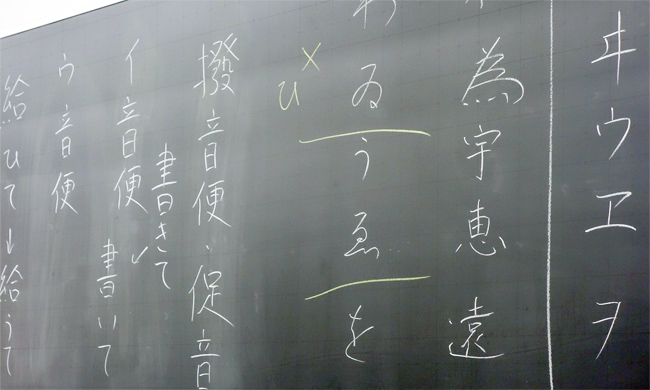 ヰウヱヲ
為宇恵遠
わゐうゑを
×
撥音便、促音
書きて
イ音便
↙
書いて
ウ音便
給ひて↓給うて